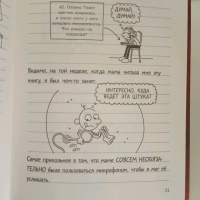 ДУМАЙ,
ДУМАЙ!
Видимо, на той неделе, когда мама читала мне эту
книгу, я был чем-то занят.
ИНТЕРЕСНО, КУДА
ВЕДЁТ ЭТА ШТУКА?
Самое прикольное в том, что маме СОВСЕМ НЕОБЯЗА-
ТЕЛЬНО было пользоваться микрофоном, чтобы я мог её
услышать.